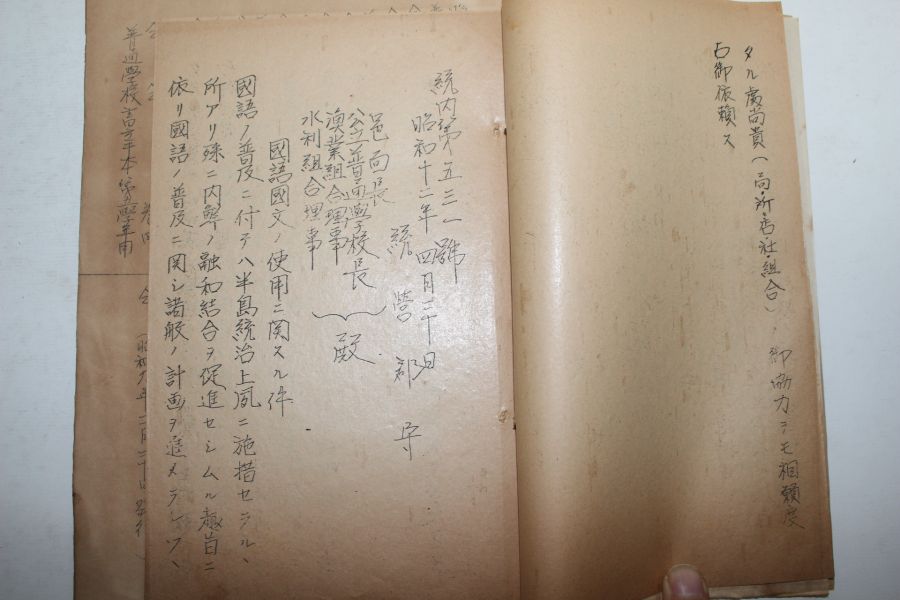 タル處尚貴(局・所・店・社・組合)ノ御協力ヲモ相願度
右御依頼ス
統內第五三一號
昭和十二年四月二十日
統營郡守
邑面長
公立普通學校長
漁業組合理事
水利組合理事
殿
國語國文ノ使用ニ関スル件
國語ノ普及ニ付テハ半島統治上夙ニ施措セラル、
所アリ殊ニ內鮮ノ融和結合ヲ促進セシムル趣旨ニ
依リ國語ノ普及ニ関シ諸般ノ計画ヲ進メラレツヽ
普通學校書方手本第五學年用